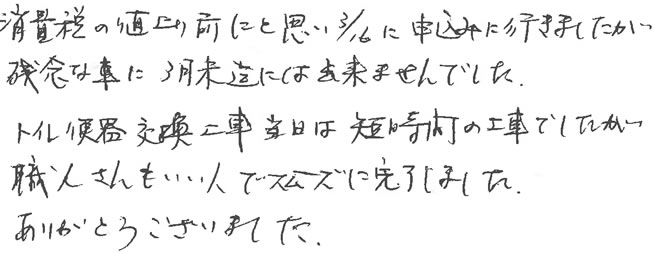 消費税の値上り前にと思い3/16に申込みに行きましたが
残念な事に3月末迄には出来ませんでした。
トイレ便器交換工事当日は短時間の工事でしたが
職人さんもいい人でスムーズに完了しました。
ありがとうございました。